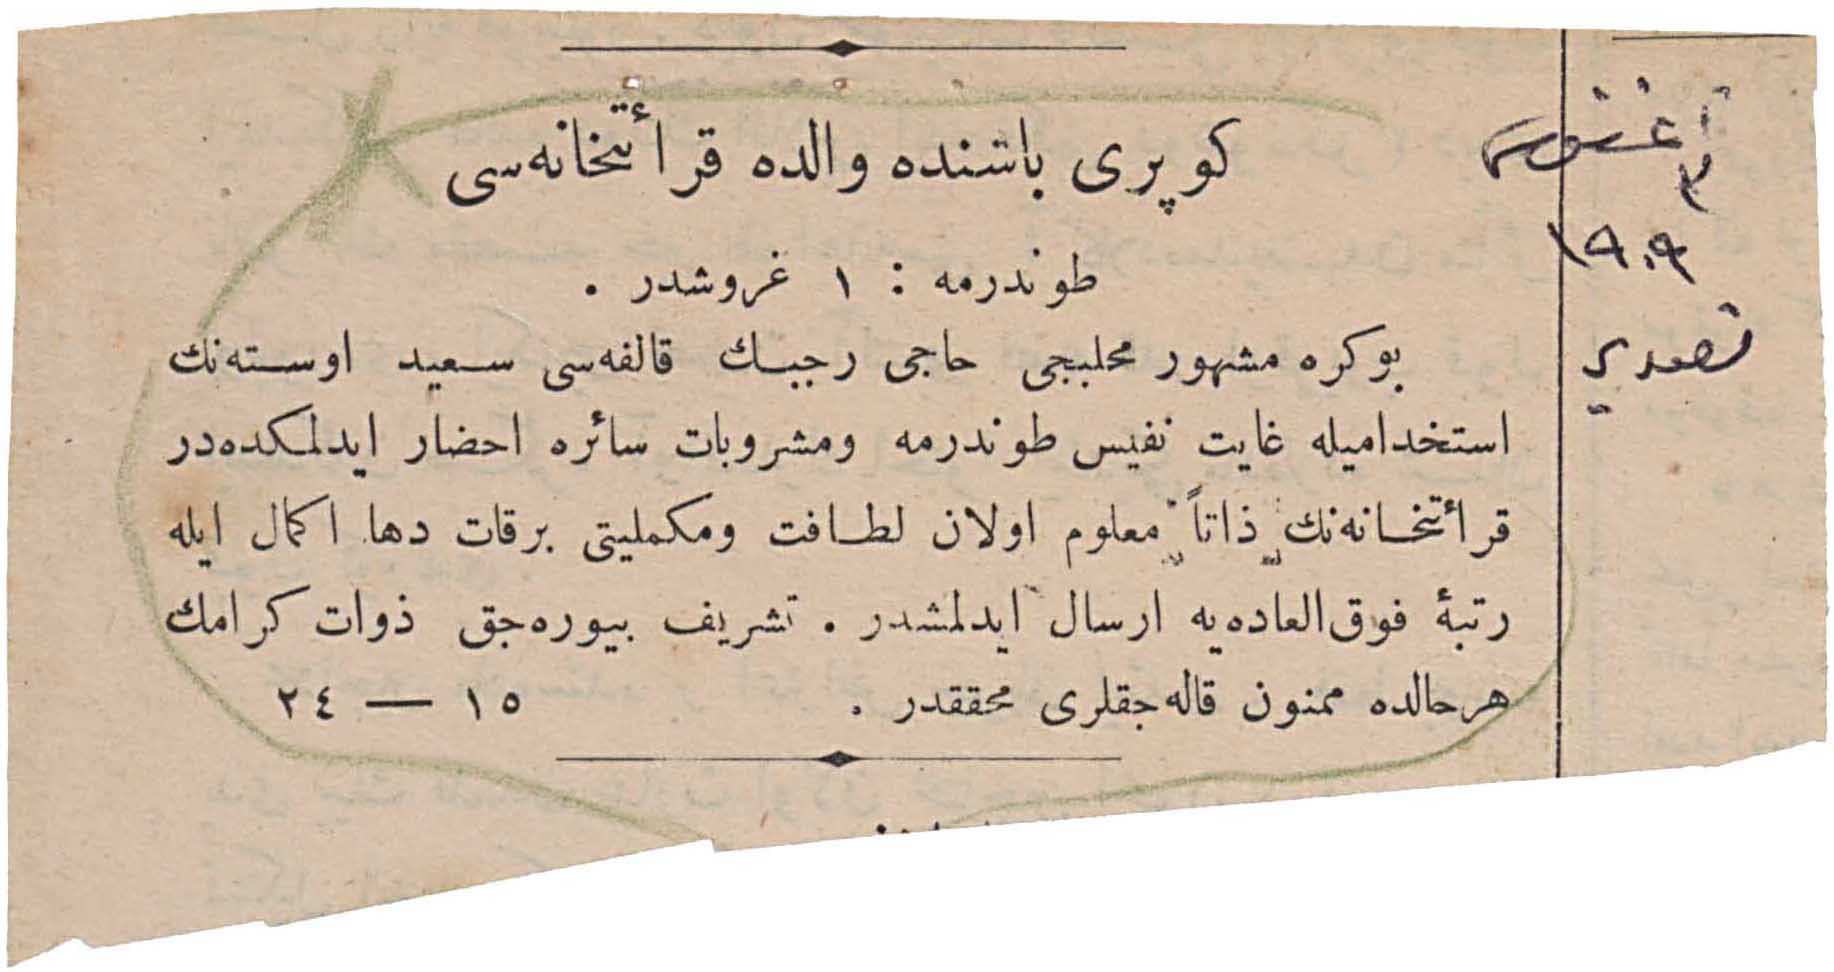 كوپری باشنده والده قرأتخانه‌سی
طوندرمه : ١ غروشدر .
بوكره مشهور محلبجی حاجی رجبك قالفه‌سی سعید اوسته‌نك
استخدامیله غایت نفیس طوندرمه ومشروبات سائره احضار ایدلمكده‌در
قرأتخانه‌نك ذاتاً معلوم اولان لطافت ومكملیتی برقات دها اكمال ایله
رتبهٔ فوق‌العاده‌یه ارسال ایدلمشدر . تشریف بیوره‌جق ذوات كرامك
هرحالده ممنون قاله‌جقلری محققدر .
١٥ — ٢٤
آغستوس
٣
١٩٠٩